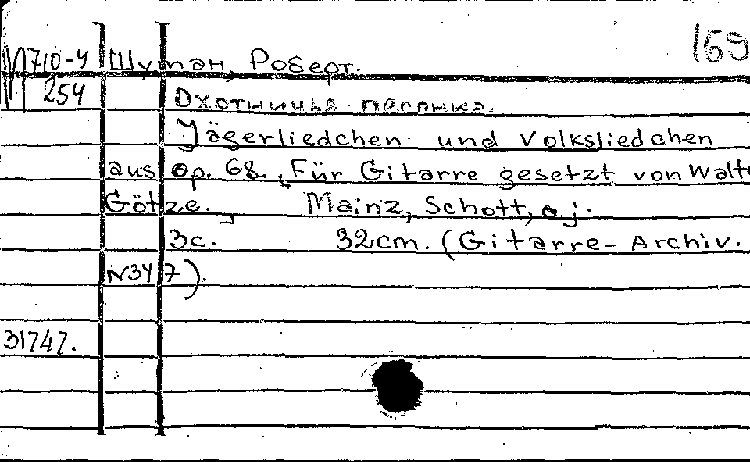 169
М710-4 Шуман, Роберт.
254 Охотничья песенка.
Jägerliedchen und Volksliedchen
aus op. 68. Für Gitarre gesetzt von Walte
Götze. Mainz, Schott, o j.
3с. 32cm. (Gitarre-Archiv.
N347).
31747.